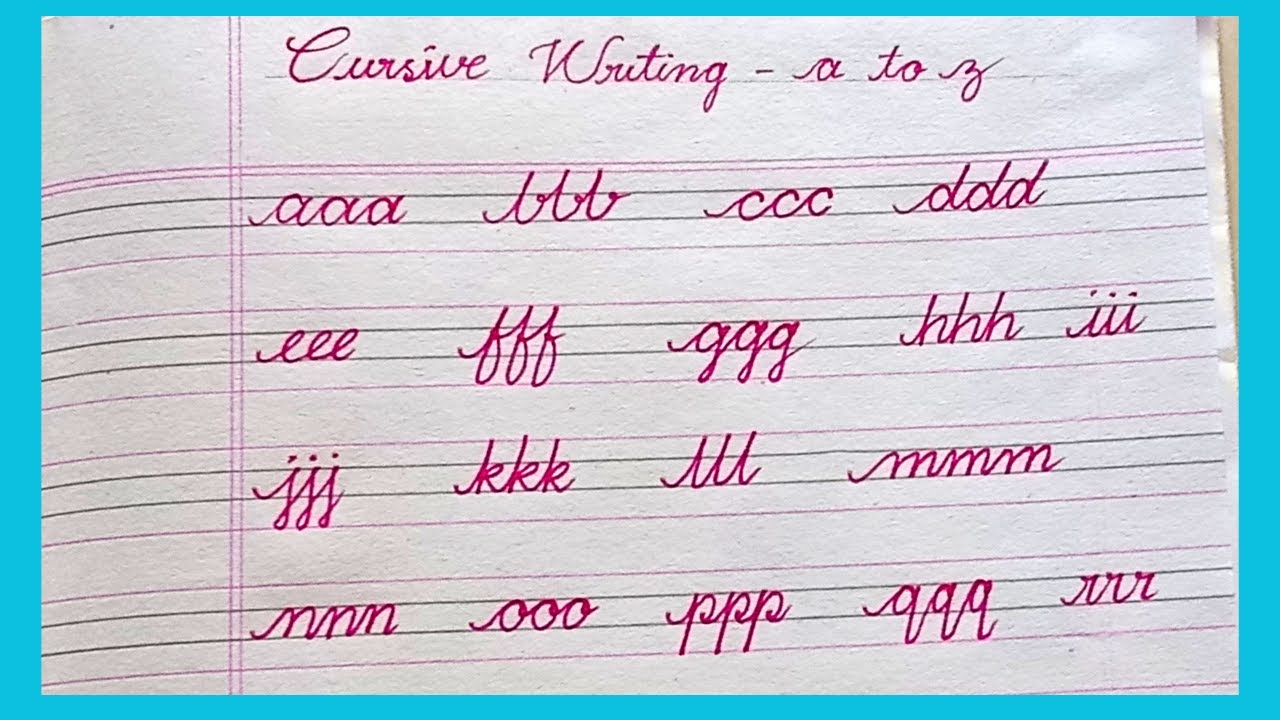 Cursive Writing - a to z
aaa bbb ccc ddd
eee fff ggg hhh iii
jjj kkk lll mmm
nnn ooo ppp qqq rrr